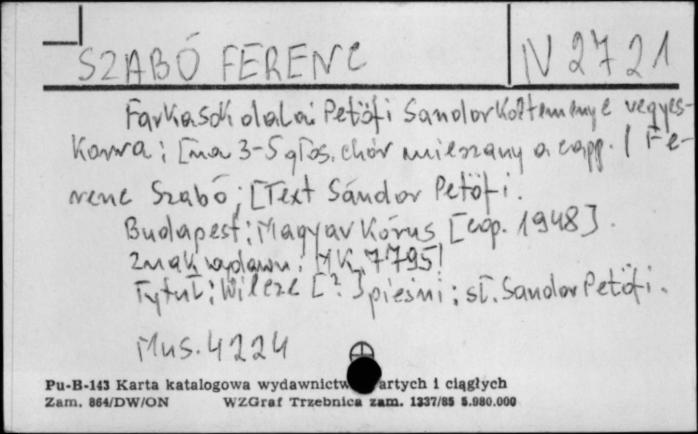 SZABÓ FERENC
IV 2721
Farkasok dala: Petőfi Sandor költemenye vegyes-
Karra; [na 3-5 głos. chór mieszany a capp. / Fe-
renc Szabó; [Text Sándor Petöfi.
Budapest: Magyar Kórus [cop. 1948].
Znak wydawn: MK 7795!
Tytuł: Wilcze [?] pieśni; sł. Sandor Petöfi.
Mus. 4224
Pu-B-143 Karta katalogowa wydawnictw artych i ciągłych
Zam. 864/DW/ON WZGraf Trzebnica zam. 1337/85 5.980.000